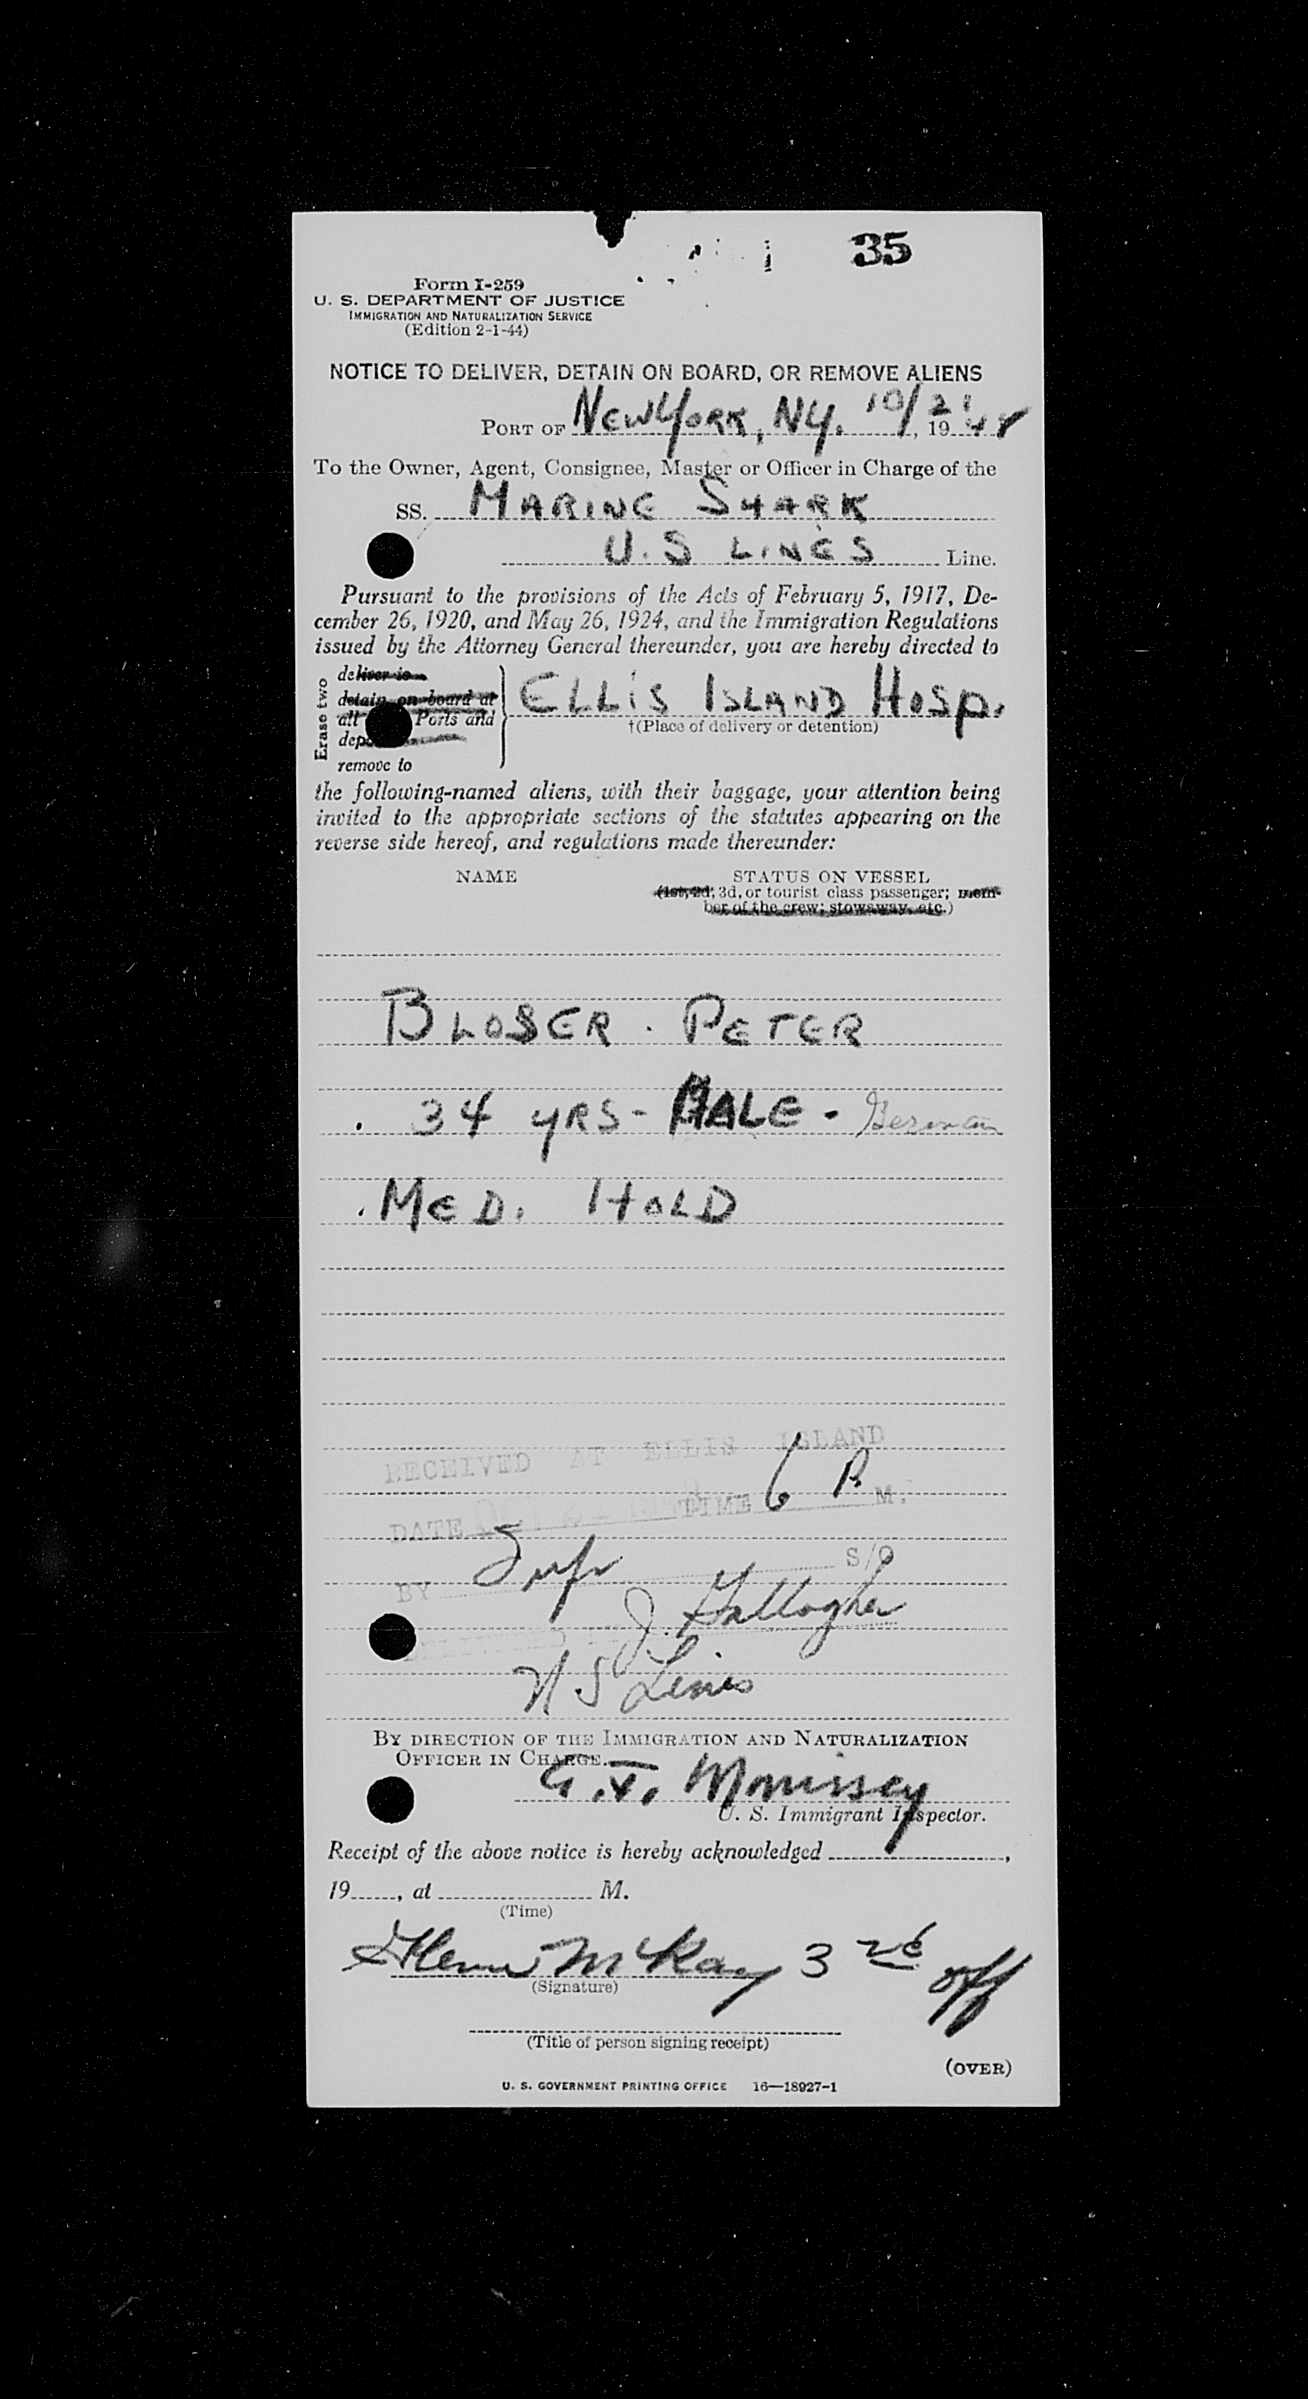 35
Form I-259
U. S. DEPARTMENT OF JUSTICE
IMMIGRATION AND NATURALIZATION SERVICE
(Edition 2-1-44)
NOTICE TO DELIVER, DETAIN ON BOARD, OR REMOVE ALIENS
PORT OF NEW YORK, NY. 10/21, 1948
To the Owner, Agent, Consignee, Master or Officer in Charge of the
SS. MARINE SHARK
U.S LINES Line.
Pursuant to the provisions of the Acts of February 5, 1917, De-
cember 26, 1920, and May 26, 1924, and the Immigration Regulations
issued by the Attorney General thereunder, you are hereby directed to
Erase two
deliver to
detain on board at
all Ports and
remove to
ELLIS ISLAND HOSP.
†(Place of delivery or detention)
the following-named aliens, with their baggage, your attention being
invited to the appropriate sections of the statutes appearing on the
reverse side hereof, and regulations made thereunder:
NAME STATUS ON VESSEL
(1st, 2d, 3d, or tourist class passenger; mem-
ber of the crew; stowaway, etc.)
BLOSER. PETER
34 YRS - MALE - German
MED. HOLD
RECEIVED AT ELLIS ISLAND
DATE TIME 6 P M.
BY S/O
J. Gallagher
U S Lines
BY DIRECTION OF THE IMMIGRATION AND NATURALIZATION
OFFICER IN CHARGE.
Morrissey
U. S. Immigrant Inspector.
Receipt of the above notice is hereby acknowledged ,
19 , at M.
(Time)
Glenn McKay 3rd off
(Signature)
(Title of person signing receipt)
(OVER)
U. S. GOVERNMENT PRINTING OFFICE 16—18927-1